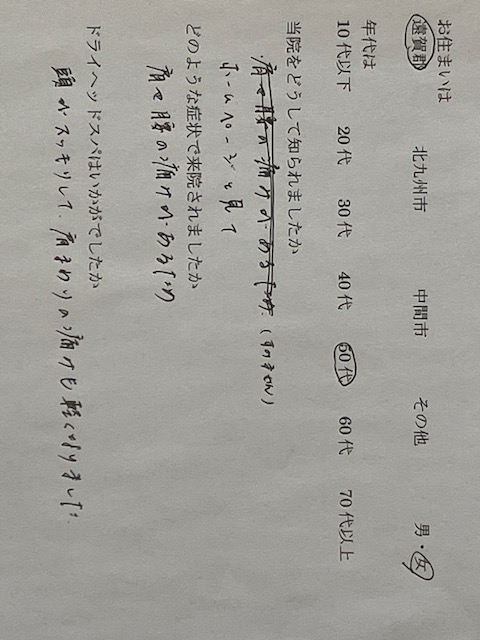 お住まいは
遠賀郡 北九州市 中間市 その他 男・女
年代は
10代以下 20代 30代 40代 50代 60代 70代以上
当院をどうして知られましたか
肩や腰の痛みがあるため (すみません)
ホームページを見て
どのような症状で来院されましたか
肩や腰の痛みがあるため
ドライヘッドスパはいかがでしたか
頭がスッキリして、肩まわりの痛みも軽くなりました。